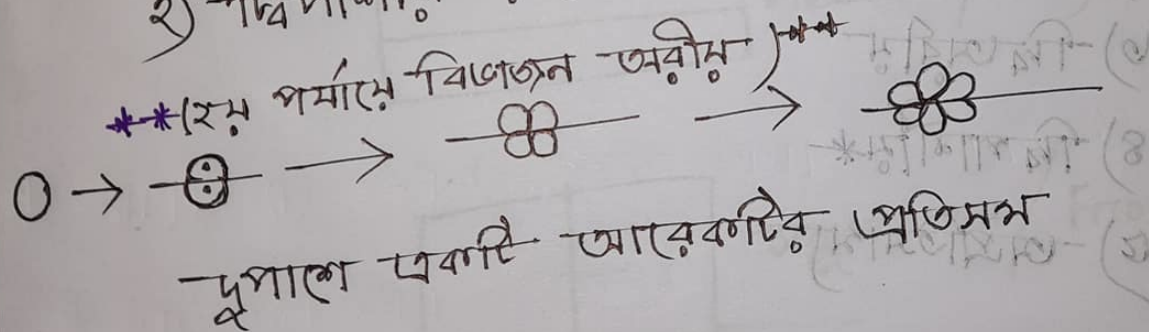 ২)
**(২য় পর্যায়ে বিভাজন অরীয়)**
দুপাশে একটি আরেকটির প্রতিসম